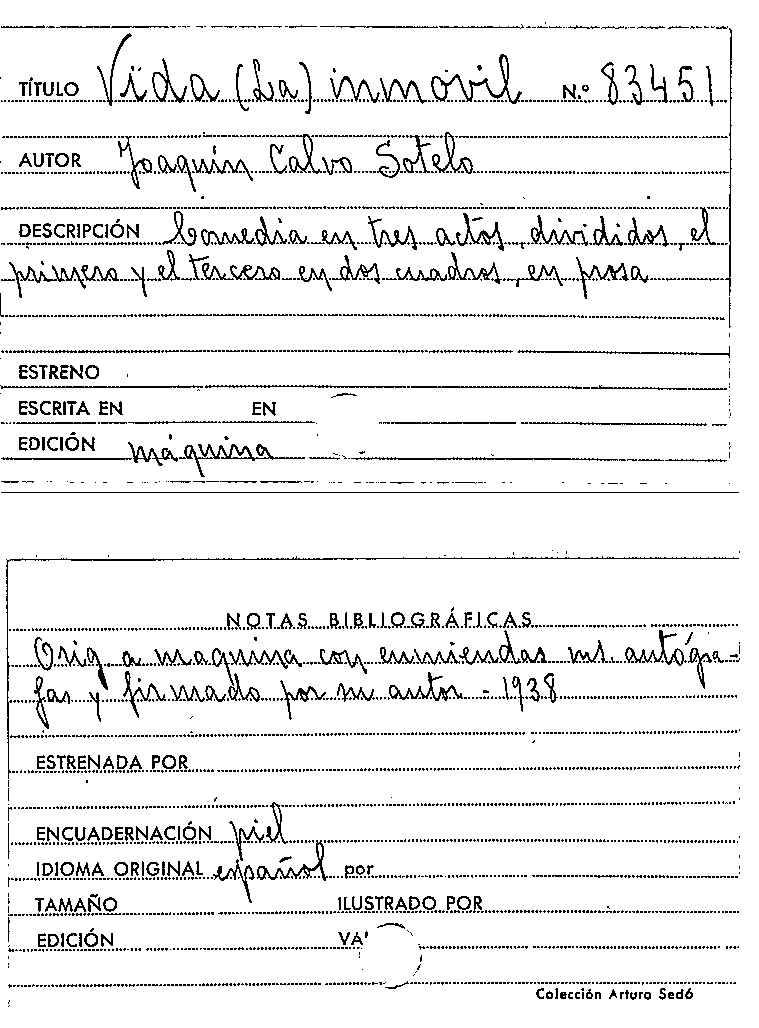 TÍTULO Vida (La) inmovil N.º 83451
AUTOR Joaquín Calvo Sotelo
DESCRIPCIÓN Comedia en tres actos, divididos, el
primero y el tercero en dos cuadros, en prosa
ESTRENO
ESCRITA EN EN
EDICIÓN máquina
NOTAS BIBLIOGRÁFICAS
Orig a maquina con enmiendas ms. autógra-
fas y firmado por su autor - 1938
ESTRENADA POR
ENCUADERNACIÓN piel
IDIOMA ORIGINAL español por
TAMAÑO ILUSTRADO POR
EDICIÓN VA
Colección Arturo Sedó